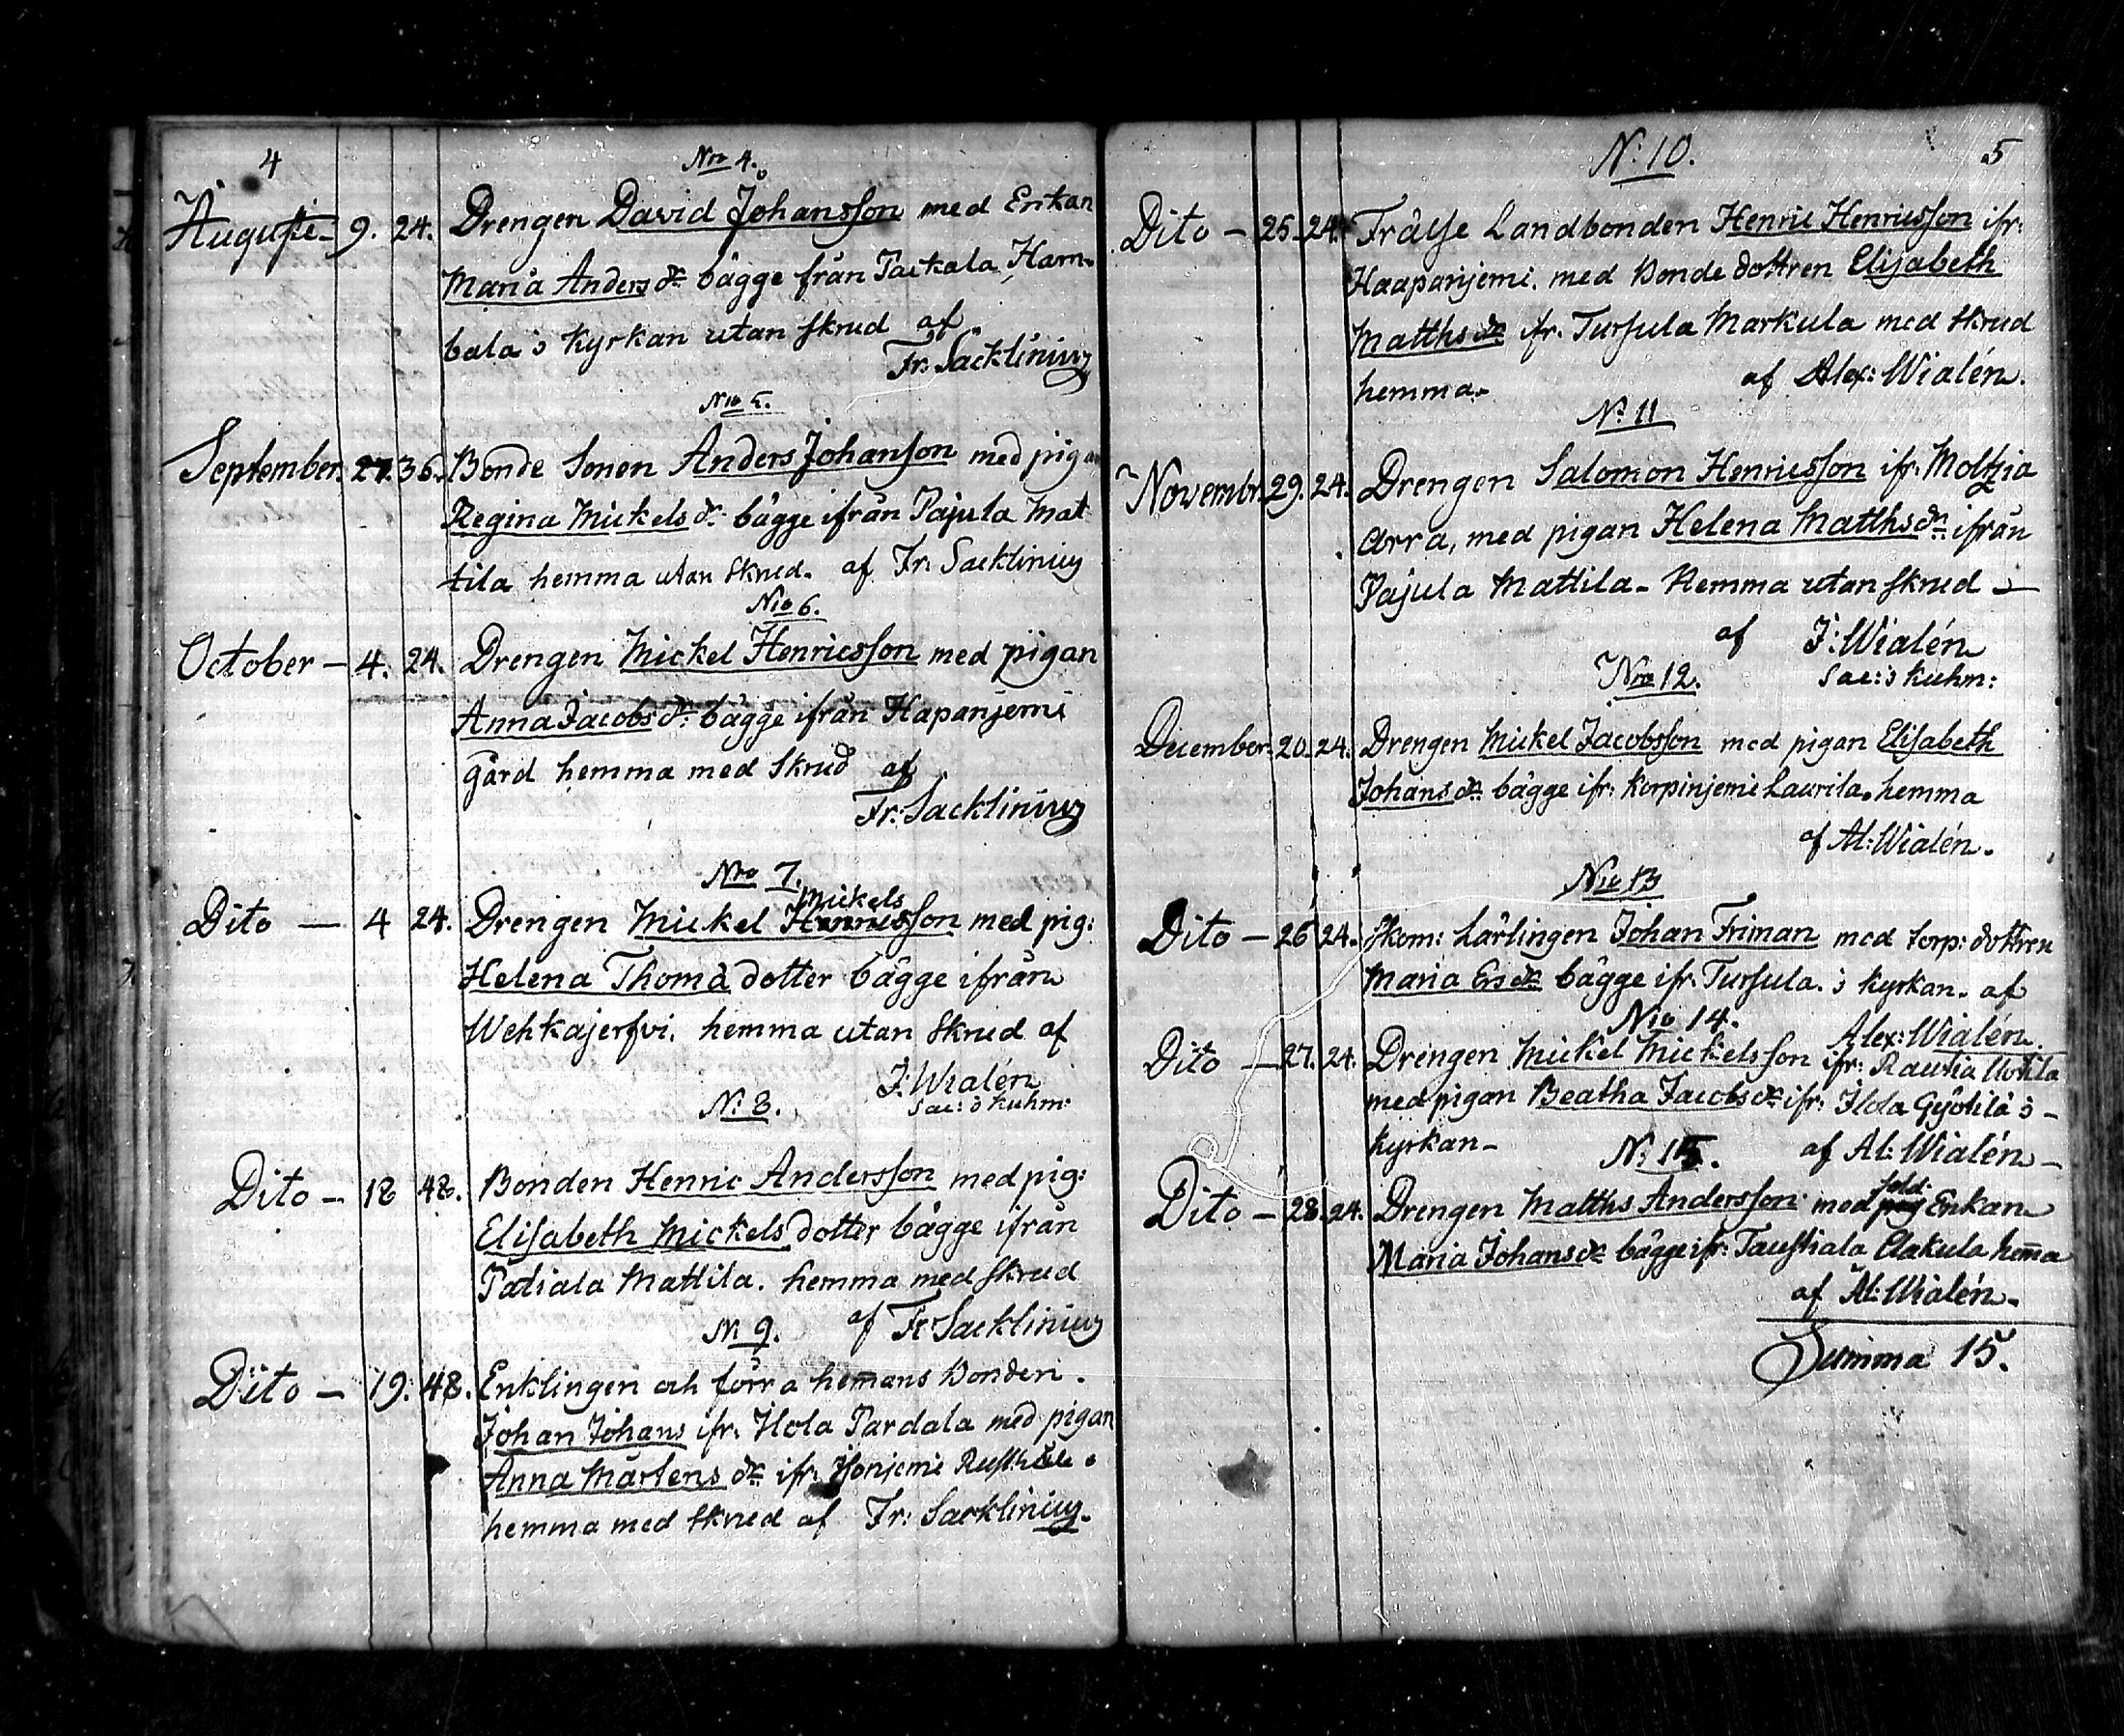 4
Nro 4.
Augusti - 9. 24. Drengen David Johansson med Enkan
Maria Anders dr bägge från Taekala Ham-
bala i Kyrkan utan skrud af
Fr: Sacklinius
Nro 5.
September. 27. 36. Bonde Sonen Anders Johanson med pigan
Regina Mickels dr bägge ifrån Pajula Mat
tila hemma utan skrud. af Fr: Sacklinius
Nro 6.
October - 4. 24. Drengen Mickel Henricsson med pigan
Anna Jacobs dr bägge ifrån Hapanjemi
gård hemma med Skrud af
Fr: Sacklinius
Nro 7.
Mickels
Dito - 4 24. Drengen Mickel Henricsson med pig:
Helena Thomä dotter bägge ifrån
Wehkajerfvi. hemma utan skrud af
J: Wialén
Sac: i Kuhm:
N: 8.
Dito - 18 48. Bonden Henric Andersson med pig:
Elisabeth Mickels dotter bägge ifrån
Patiala Mattila. hemma med skrud
af Fr Sacklinius
N: 9.
Dito - 19. 48. Enklingen och förra hemans Bonden.
Johan Johans ifr. Ilola Pardala med pigan
Anna Mårtens dr ifr: Isonjemi
hemma med skrud af Fr: Sacklinius.
5
N: 10.
Dito - 25. 24. Frälse Landbonden Henric Henricsson ifr:
Haapanjemi. med Bonde dottren Elisabeth
Matths dr ifr. Tursula Markula med skrud
hemma. af Alex: Wialén.
N: 11
Novembr. 29. 24. Drengen Salomon Henricsson ifr: Moltzia
Arra, med pigan Helena Matths dr ifrån
Pajula Mattila - Hemma utan skrud -
af J: Wialén
Sac: i Kuhm:
Nro 12.
December. 20. 24. Drengen Mickel Jacobsson med pigan Elisabeth
Johans dr bägge ifr: Korpinjemi Laurila. hemma
af Al: Wialén.
Nro 13
Dito - 26 24. Skom: Lärlingen Johan Friman med torp: dottren
Maria Ers dr bägge ifr. Tursula. i kyrkan. af
Alex: Wialén.
Nro 14.
Dito - 27. 24. Drengen Mickel Mickelsson ifr: Rautia Uotila
med pigan Beatha Jacobs dr ifr: Ilola Gyötilä i -
kyrkan - af Al: Wialén -
N: 15.
Dito - 28. 24. Drengen Matths Andersson med pig Enkan
Maria Johans dr bägge ifr: Taustiala Elakula hema
af Al: Wialén.
Summa 15.